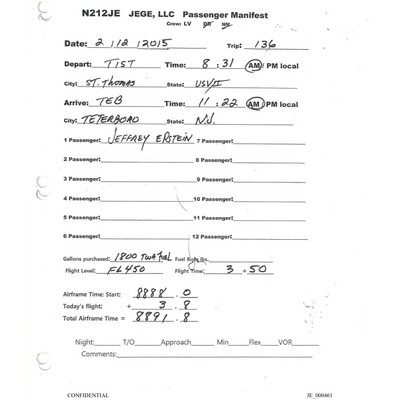 N212JE JEGE, LLC Passenger Manifest
Crew: LV DR NN
Date: 2 | 12 | 2015 Trip: 136
Depart: TIST Time: 8 : 31 AM / PM local
City: ST. THOMAS State: USVI
Arrive: TEB Time: 11 : 22 AM / PM local
City: TETERBORO State: N.J.
1 Passenger: JEFFREY EPSTEIN 7 Passenger:
2 Passenger: 8 Passenger:
3 Passenger: 9 Passenger:
4 Passenger: 10 Passenger:
5 Passenger: 11 Passenger:
6 Passenger: 12 Passenger:
Gallons purchased: 1800 Fuel lbs.
Flight Level: FL450 Flight Time: 3 . 50
Airframe Time: Start: 8888 . 0
Today's flight: + 3 . 8
Total Airframe Time = 8891 . 8
Night: T/O Approach Min Flex VOR
Comments:
CONFIDENTIAL JE_000461